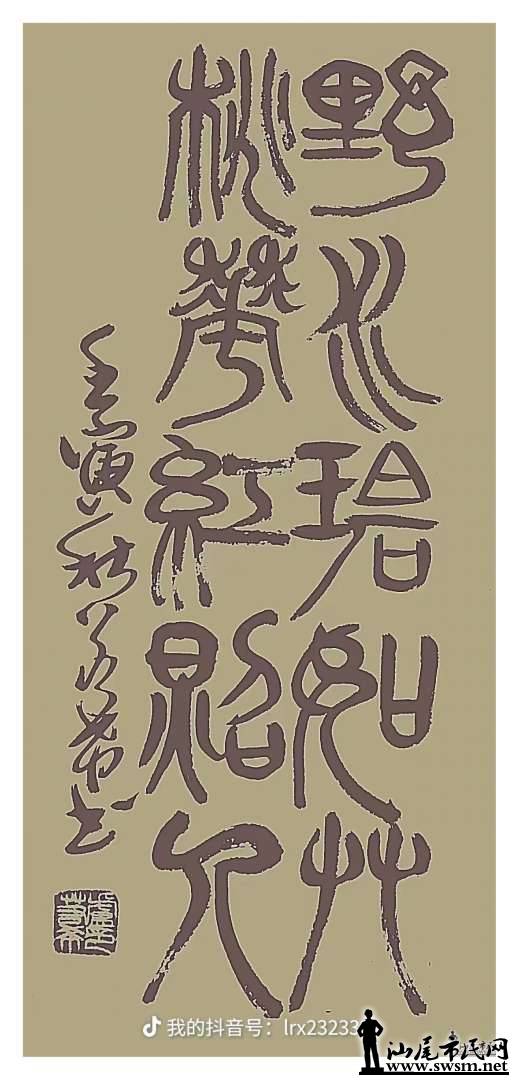 野水碧如艸
桃華紅照人
壬寅秋若希书
我的抖音号: lrx23233
汕尾市民网
www.swsm.net